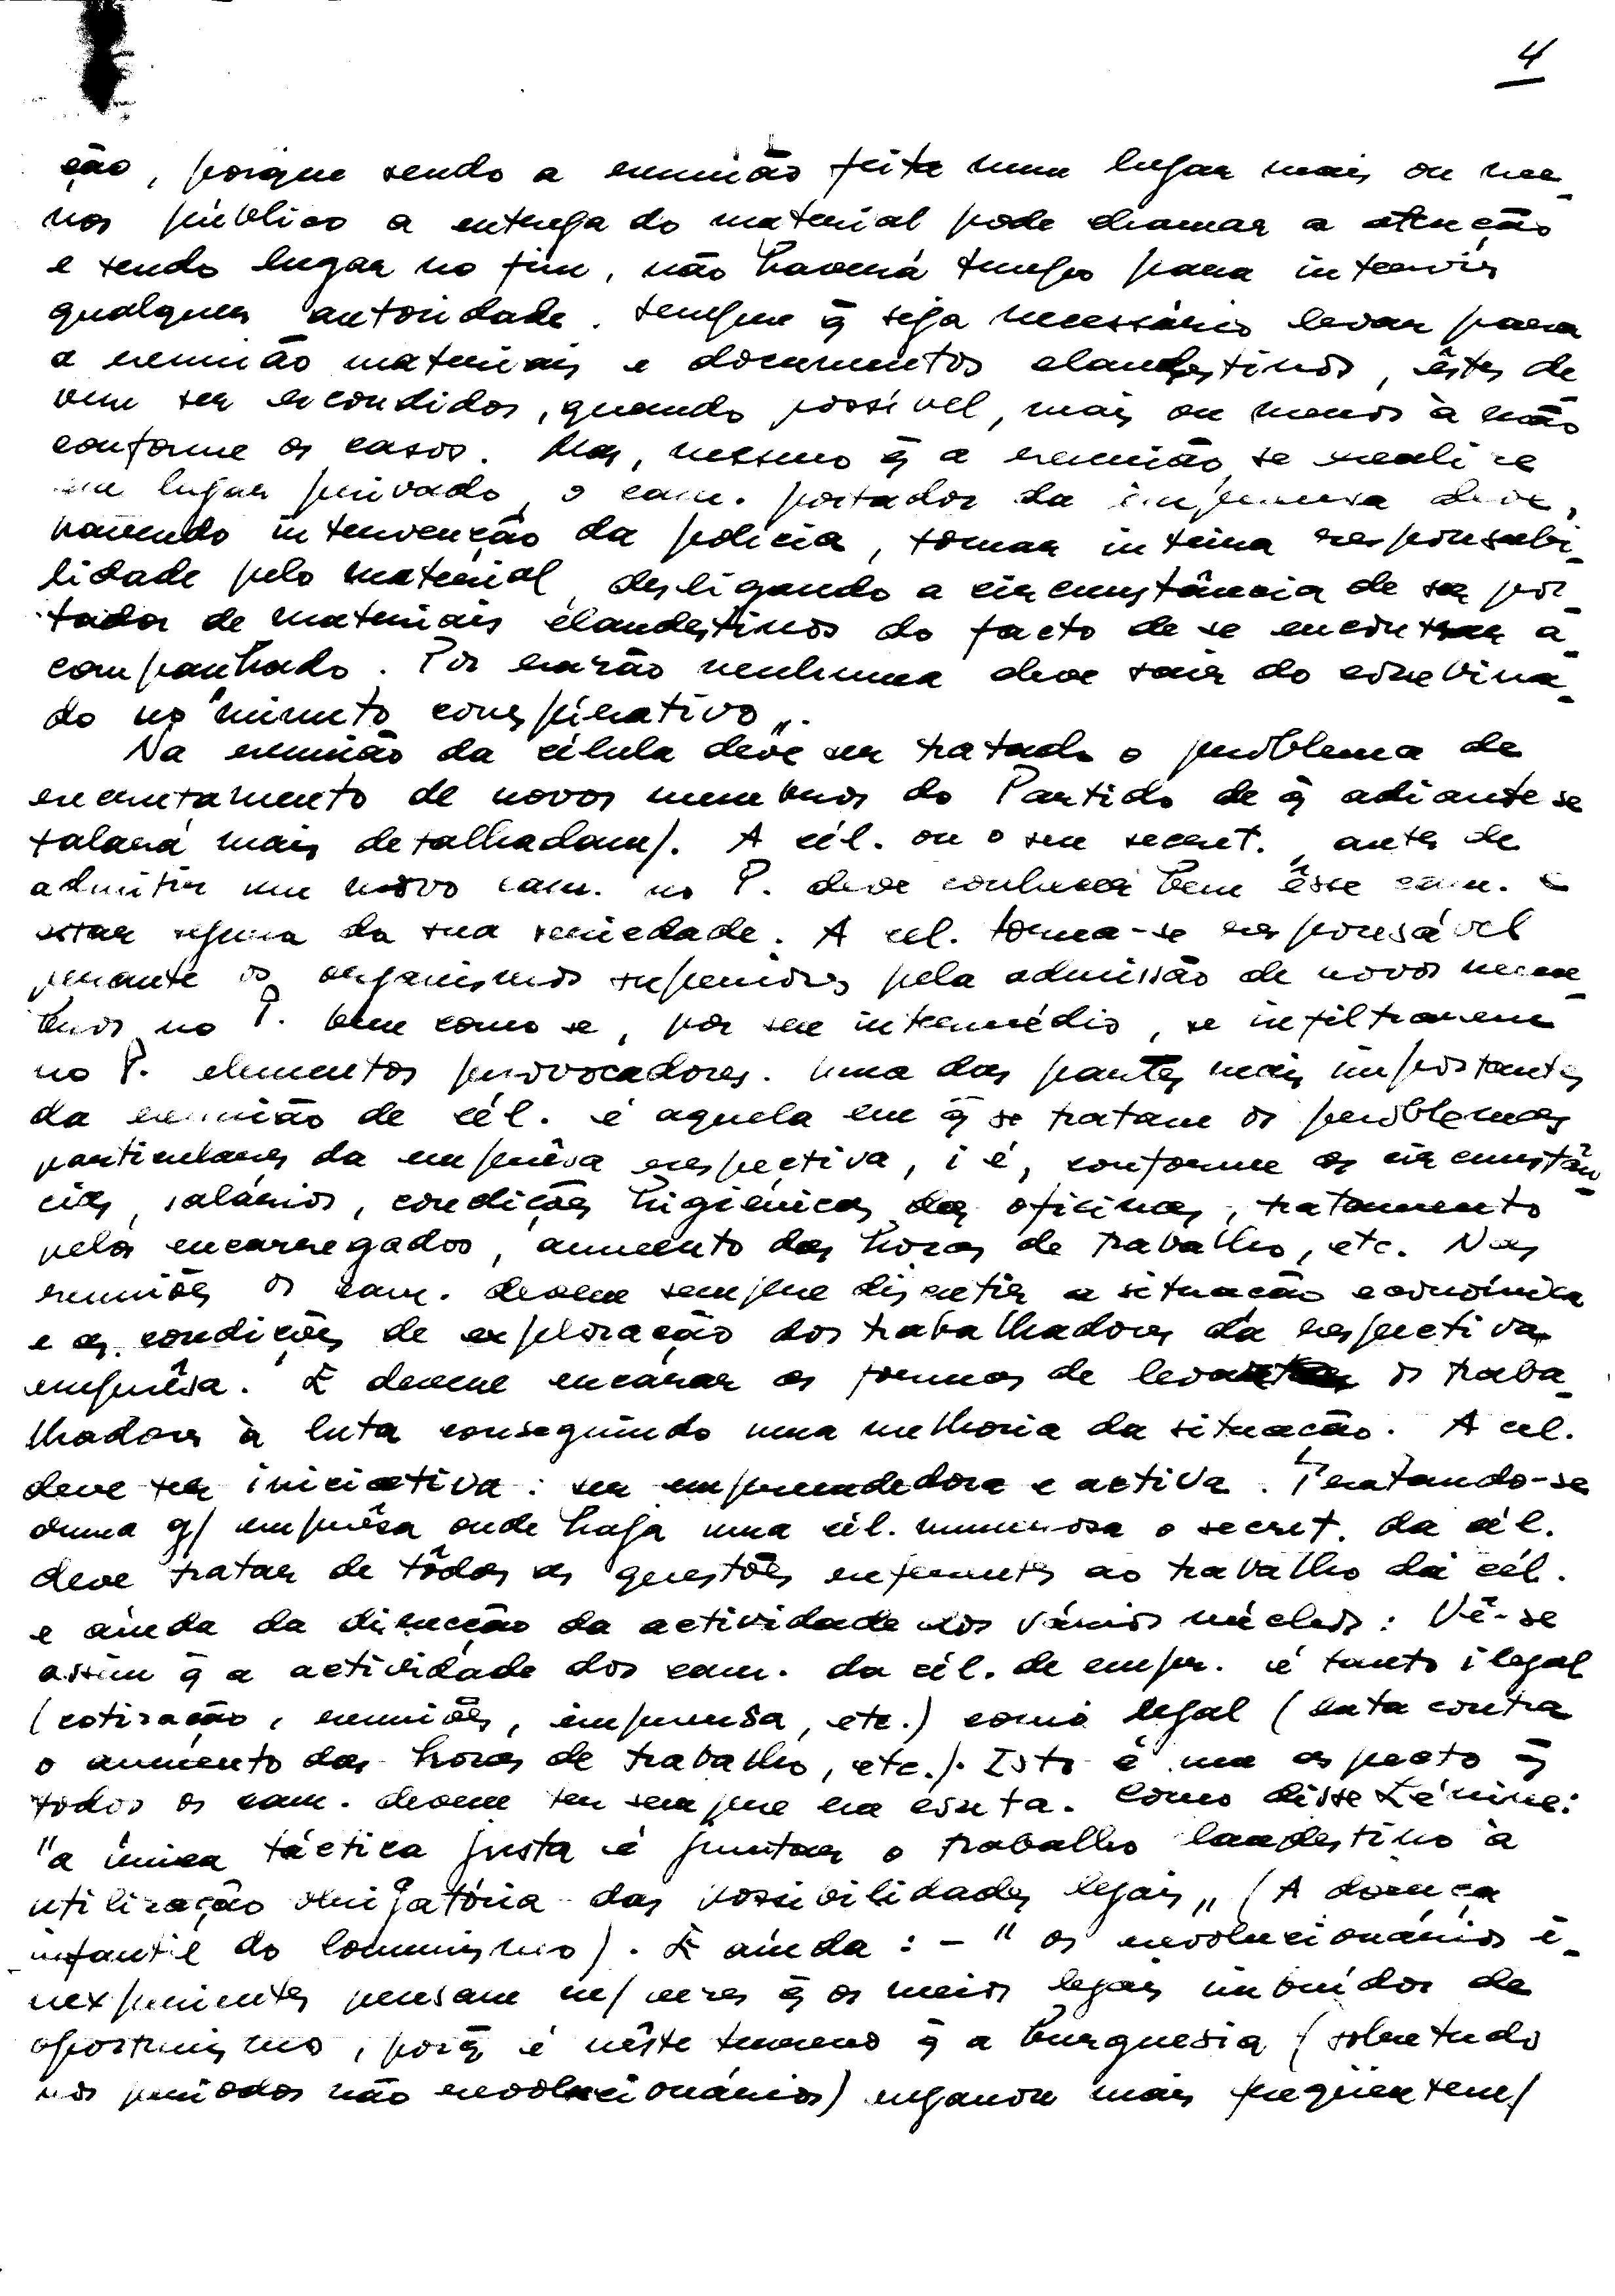 4
ção, porque sendo a reunião feita num lugar mais ou me-
nos público a entrega do material pode chamar a atenção
e tendo lugar no fim, não haverá tempo para intervir
qualquer autoridade. Sempre q̃ seja necessário levar para
a reunião materiais e documentos clandestinos, êstes de
vem ser escondidos, quando possível, mais ou menos à mão
conforme os casos. Mas, mesmo q̃ a reunião se realize
em lugar privado, o cam. portador da imprensa deve,
havendo intervenção da polícia, tomar inteira responsabi-
lidade pelo material, desligando a circunstância de ser por-
tador de materiais clandestinos do facto de se encontrar a-
companhado. Por razão nenhuma deve sair do combina-
do no "minuto conspirativo".
Na reunião da célula deve ser tratado o problema de
recrutamento de novos membros do Partido de q̃ adiante se
falará mais detalhadam/. A cél. ou o seu secret., antes de
admitir um novo cam. no P. deve conhecer bem êsse cam. e
estar segura da sua seriedade. A cel. torna-se responsável
perante os organismos superiores pela admissão de novos mem-
bros no P. bem como se, por seu intermédio, se infiltrarem
no P. elementos provocadores. Uma das partes mais importantes
da reunião de cél. é aquela em q̃ se tratam os problemas
particulares da emprêsa respectiva, i é, conforme as circunstân-
cias, salários, condições higiénicas das oficinas, tratamento
pelos encarregados, aumento das horas de trabalho, etc. Nas
reuniões os cam. devem sempre discutir a situação económica
e as condições de exploração dos trabalhadores da respectiva
emprêsa. E devem encarar as formas de levar os traba-
lhadores à luta conseguindo uma melhoria da situação. A cel.
deve ter iniciativa: ser empreendedora e activa. Tratando-se
duma g/ emprêsa onde haja uma cél. numerosa o secret. da cél.
deve tratar de tôdas as questões referentes ao trabalho da cél.
e ainda da direcção da actividade dos vários núcleos: Vê-se
assim q̃ a actividade dos cam. da cél. de empr. é tanto ilegal
(cotização, reuniões, imprensa, etc.) como legal (luta contra
o aumento das horas de trabalho, etc.). Isto é um aspecto q̃
todos os cam. devem ter sempre em conta. Como disse Lénine:
"a única táctica justa é juntar o trabalho clandestino à
utilização obrigatória das possibilidades legais" (A doença
infantil do Comunismo). E ainda: - "os revolucionários i-
nexperientes pensam m/ vezes q̃ os meios legais imbuídos de
oportunismo, porq̃ é nêste terreno q̃ a burguesia (sobretudo
nos períodos não revolucionários) enganou mais freqüentem/